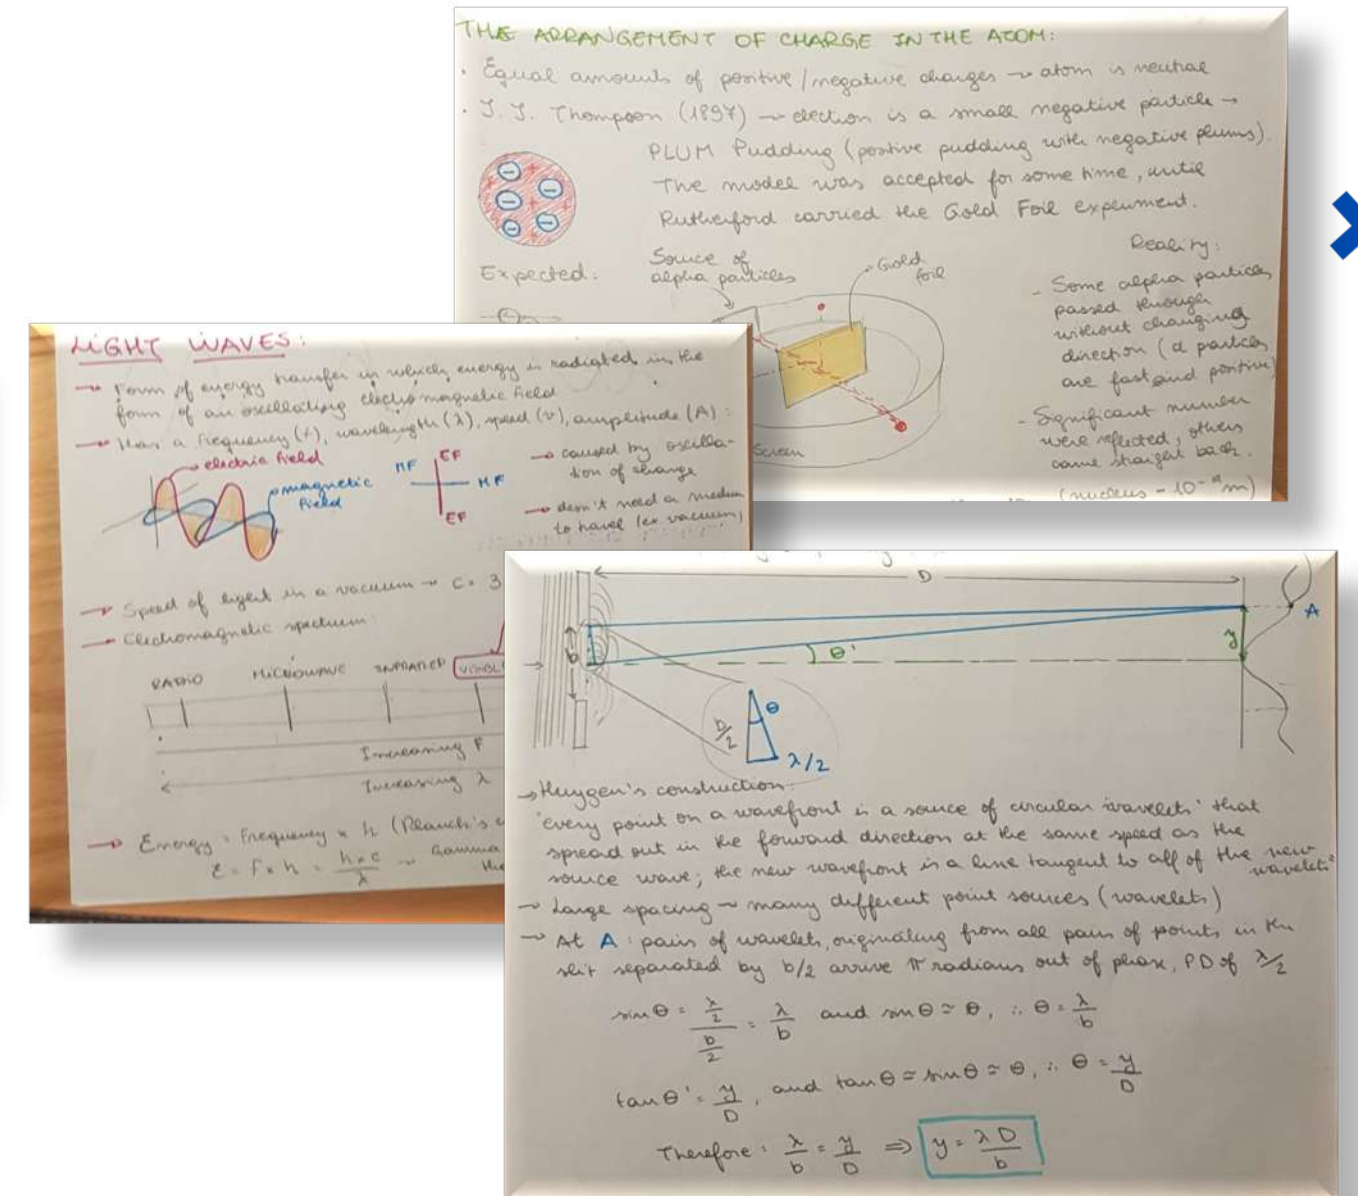 THE ARRANGEMENT OF CHARGE IN THE ATOM:
· Equal amounts of positive/negative charges → atom is neutral
· J. J. Thompson (1897) → electron is a small negative particle →
PLUM Pudding (positive pudding with negative plums).
The model was accepted for some time, until
Rutherford carried the Gold Foil experiment.
Expected:
Source of
alpha particles
Gold
foil
Screen
Reality:
- Some alpha particles
passed through
without changing
direction (α particles
are fast and positive)
- Significant number
were reflected, others
came straight back.
(nucleus -
LIGHT WAVES:
→ Form of energy transfer in which energy is radiated in the
form of an oscillating electromagnetic field
→ Has a frequency (f), wavelength (λ), speed (v), amplitude (A):
electric field
magnetic
field
EF
MF
MF
EF
→ caused by oscilla-
tion of charge
→ don't need a medium
to travel (ex vacuum)
→ Speed of light in a vacuum → c = 3
→ Electromagnetic spectrum:
RADIO
MICROWAVE
INFRARED
VISIBL
Increasing F
Increasing λ
→ Energy = Frequency × h (Planck's c
E = f × h = h × c / λ → Gamma
the
D
A
b
θ'
y
b/2
θ
λ/2
→ Huygen's construction:
'every point on a wavefront is a source of circular 'wavelets' that
spread out in the forward direction at the same speed as the
source wave; the new wavefront is a line tangent to all of the new
wavelets'
→ Large spacing → many different point sources (wavelets)
→ At A: pairs of wavelets, originating from all pairs of points in the
slit separated by b/2 arrive π radians out of phase, PD of λ/2
sin θ = (λ/2)/(b/2) = λ/b and sin θ ≈ θ, ∴ θ = λ/b
tan θ' = y/D, and tan θ ≈ sin θ ≈ θ, ∴ θ = y/D
Therefore: λ/b = y/D ⇒ y = λD/b